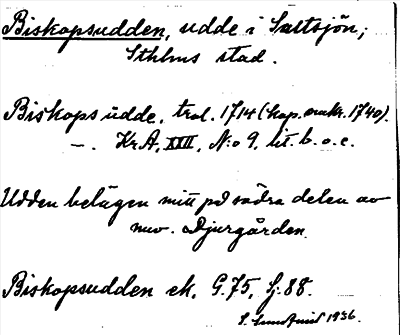 Biskopsudden, udde i Saltsjön;
Sthlms stad.
Biskops udde, trol. 1714 (kop. omkr. 1740).
—. Kr.A, XXII, N:o 9, lit. b. o. c.
Udden belägen mitt på södra delen av
nuv. Djurgården.
Biskopsudden ek. G. 75, Sj. 88.
1936.